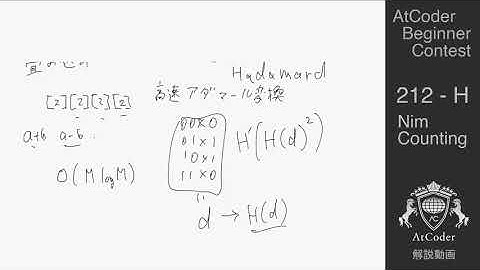 Hadamard
高速アダマール変換
[2][2][2][2]
a+b a-b
O(M log M)
00×0
01×1
10×1
11×0
H'(H(d)²)
d → H(d)
AtCoder
Beginner
Contest
212 - H
Nim
Counting
AC
AtCoder
解説動画